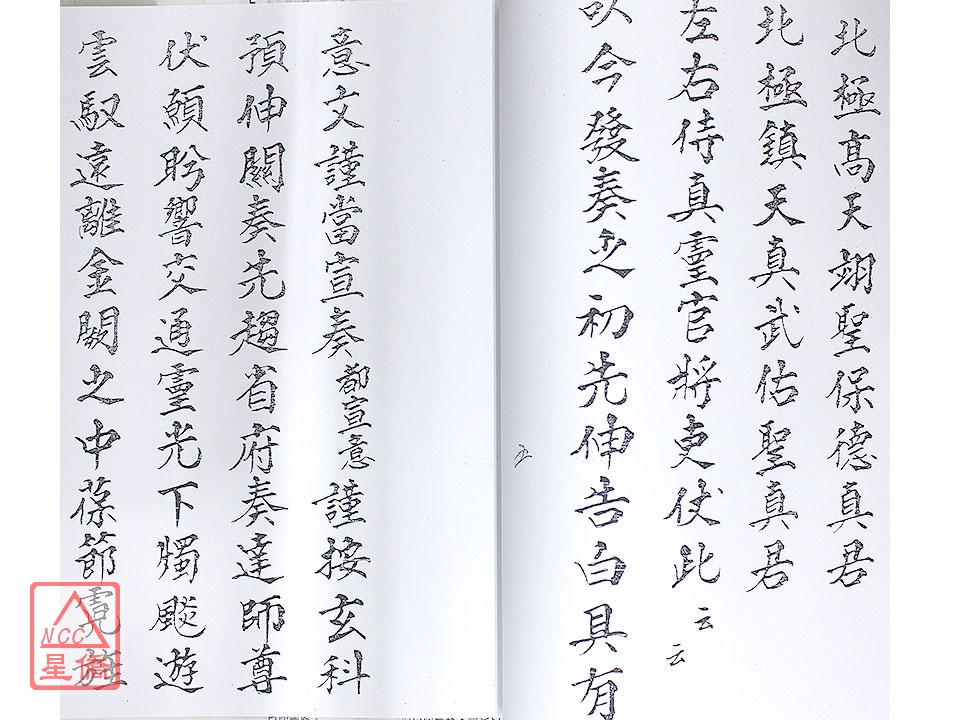 北極高天翊聖保德真君
北極鎮天真武佑聖真君
左右侍真靈官將吏仗此云云
以今發奏之初先伸告白具有
五
意文謹當宣奏都宣意謹按玄科
預伸關奏先趨省府奏達師尊
伏願肹響交通靈光下燭飈遊
雲馭遠離金闕之中葆節霓旌
NCC
星僑